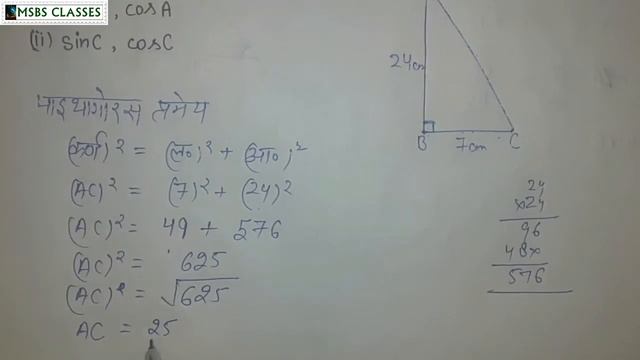 MSBS CLASSES
, cosA
(ii) sinC , cosC
पाइथागोरस प्रमेय
(कर्ण)² = (ल०)² + (आ०)²
(AC)² = (7)² + (24)²
(AC)² = 49 + 576
(AC)² = 625
(AC)² = √625
AC = 25
24cm
B 7cm C
24
×24
96
48×
576